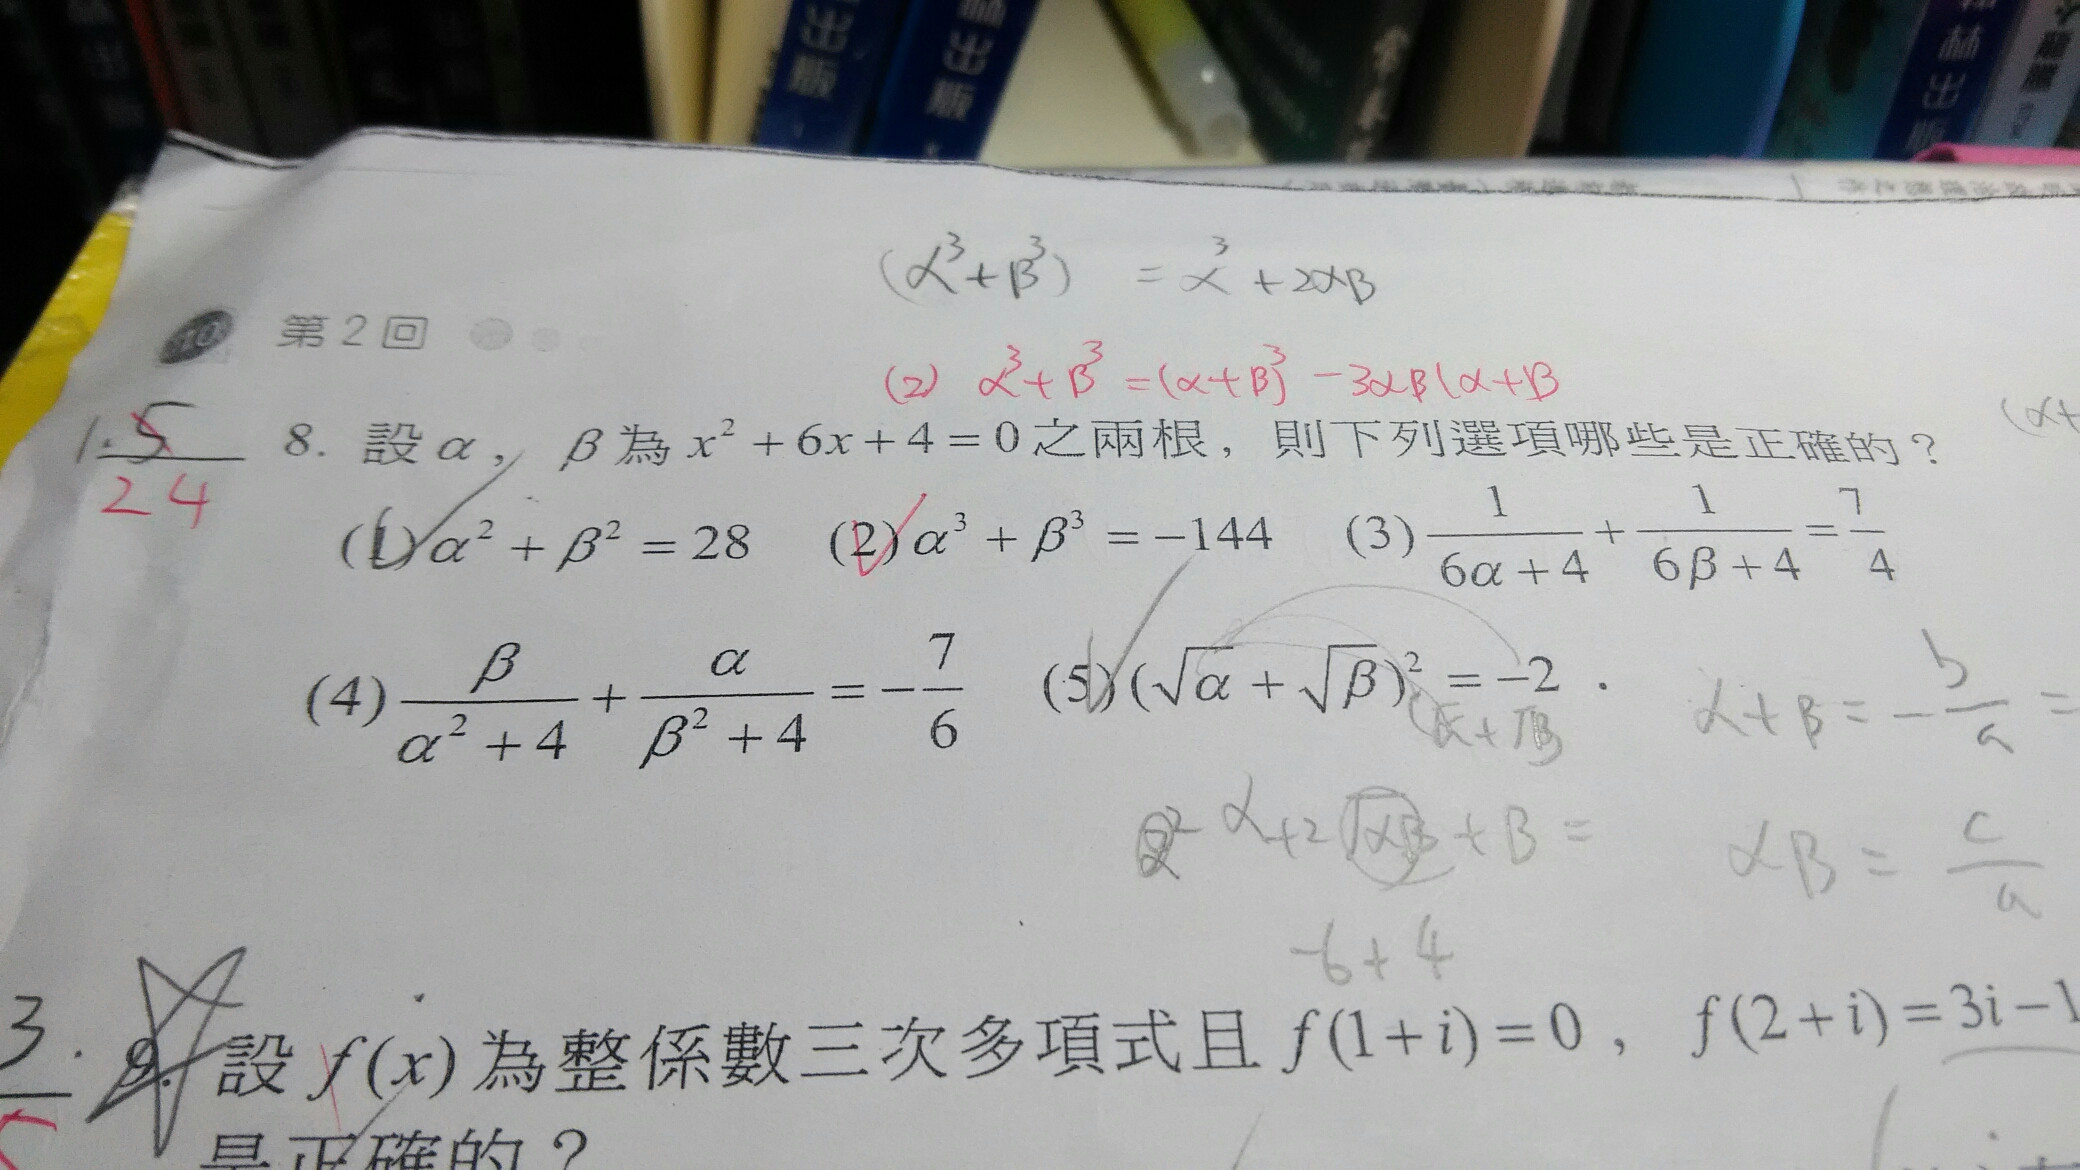 出版
林出版
林出版
(α³+β³) = α³+2αβ
10 第2回
(2) α³+β³=(α+β)³-3αβ(α+β
1.5
24
8. 設α, β為x²+6x+4=0之兩根,則下列選項哪些是正確的?
(α+
(1)α²+β²=28 (2)α³+β³=-144 (3)1/(6α+4)+1/(6β+4)=7/4
(4)β/(α²+4)+α/(β²+4)=-7/6 (5)(√α+√β)²=-2.
(√α+√β
α+β=-b/a=
α+2√αβ+β=
αβ=c/a
-6+4
3.
9. 設f(x)為整係數三次多項式且f(1+i)=0, f(2+i)=3i-1
是正確的?